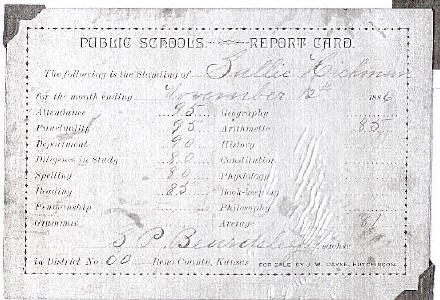 PUBLIC SCHOOLS. REPORT CARD.
The following is the Standing of Lullie Hickman
for the month ending November 12th 1886
Attendance 95 Geography
Punctuality 95 Arithmetic 85
Deportment 90 History
Diligence in Study 80 Constitution
Spelling 80 Physiology
Reading 83 Book-keeping
Penmanship Philosophy
Grammar Average
S. P. Beardsley Teacher
in District No 60 Reno County, Kansas FOR SALE BY J. W. PAYNE, HUTCHINSON.